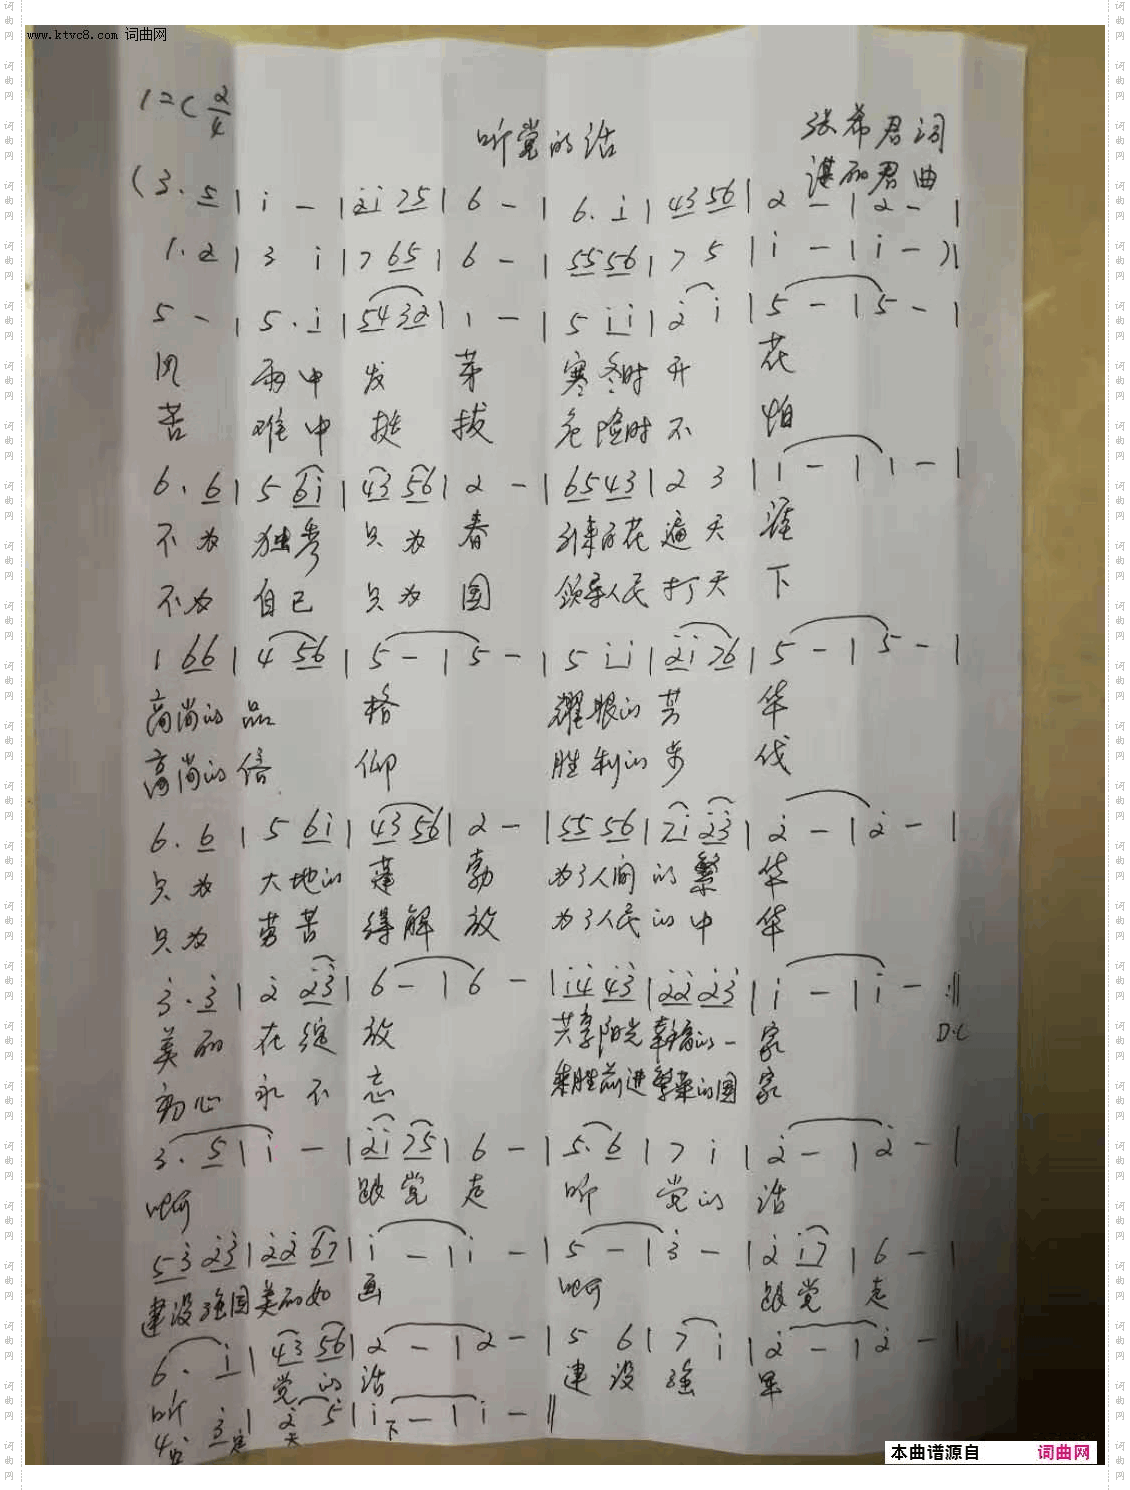 www.ktvc8.com 词曲网
1=C 2/4
听党的话
张希君词
谌丽君曲
(3. 5 | i - | 2i 75 | 6 - | 6. i | 43 56 | 2 - | 2 - |
1. 2 | 3 i | 7 65 | 6 - | 55 56 | 7 5 | i - | i - )|
5 - | 5. i | 5432 | 1 - | 5 ii | 2 i | 5 - | 5 - |
风 雨中 发 芽 寒冬时 开 花
苦 难中 挺 拔 危险时 不 怕
6. 6 | 5 6i | 43 56 | 2 - | 6543 | 2 3 | 1 - | 1 - |
不为 独秀 只为 春 引来百花 遍天 涯
不为 自己 只为 国 领导人民 打天 下
1 66 | 4 56 | 5 - | 5 - | 5 ii | 2i 76 | 5 - | 5 - |
高尚的 品 格 耀眼的 芳 华
高尚的 信 仰 胜利的 步 伐
6. 6 | 5 6i | 43 56 | 2 - | 55 56 | 7i 23 | 2 - | 2 - |
只为 大地的 蓬 勃 为了人间 的繁 华
只为 劳苦 得解 放 为了人民 的中 华
3. 3 | 2 23 | 6 - | 6 - | i4 43 | 22 23 | i - | i - :||
美丽 在绽 放 共享阳光 幸福的一 家
D.C
初心 永不 忘 乘胜前进 繁荣的国 家
3. 5 | i - | 2i 75 | 6 - | 5. 6 | 7 i | 2 - | 2 - |
啊 跟党 走 听 党的 话
53 23 | 22 67 | i - | i - | 5 - | 3 - | 2 i7 | 6 - |
建设强国 美丽如 画 啊 跟党 走
6. i | 43 56 | 2 - | 2 - | 5 6 | 7 i | 2 - | 2 - |
听 党的 话 建设 强 军
4. 3 | 2 5 | i - | i - ||
定 天 下
本曲谱源自 词曲网